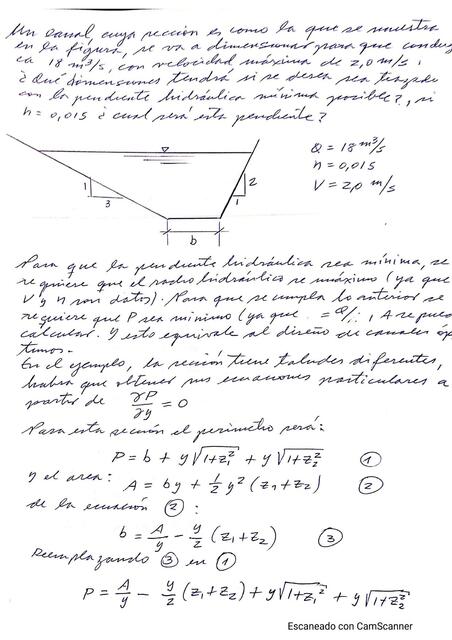 Un canal, cuya sección es como la que se muestra
en la figura, se va a dimensionar para que conduz
ca 18 m³/s, con velocidad máxima de 2,0 m/s.
¿Qué dimensiones tendrá si se desea sea trazado
con la pendiente hidráulica mínima posible?, si
n = 0,015 ¿cual será esta pendiente?
Q = 18 m³/s
n = 0,015
V = 2,0 m/s
1
3
2
1
b
Para que la pendiente hidráulica sea mínima, se
requiere que el radio hidráulico se máximo (ya que
V y n son datos). Para que se cumpla lo anterior se
requiere que P sea mínimo (ya que = Q/ , A se pue
calcular. Y esto equivale al diseño de canales óp
timos.-
En el ejemplo, la sección tiene taludes diferentes,
habrá que obtener sus ecuaciones particulares a
partir de ∂P/∂y = 0
Para esta sección el perímetro será:
P = b + y√1+z₁² + y√1+z₂² ①
y el area: A = by + ½ y² (z₁+z₂) ②
de la ecuación ②:
b = A/y - y/2 (z₁+z₂) ③
Reemplazando ③ en ①
P = A/y - y/2 (z₁+z₂) + y√1+z₁² + y√1+z₂²
Escaneado con CamScanner